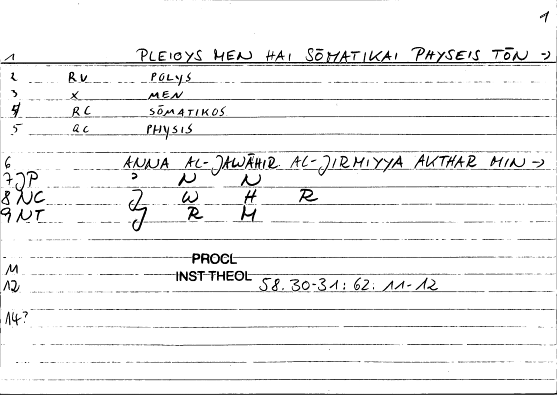 1
1 PLEIOYS MEN HAI SŌMATIKAI PHYSEIS TŌN →
2 RV POLYS
3 X MEN
4 RC SŌMATIKOS
5 QC PHYSIS
6 ANNA AL-JAWĀHIR AL-JIRMIYYA AKTHAR MIN →
7 JP ' N N
8 NC J W H R
9 NT J R M
11
12 PROCL INST THEOL 58.30-31: 62. 11-12
14?